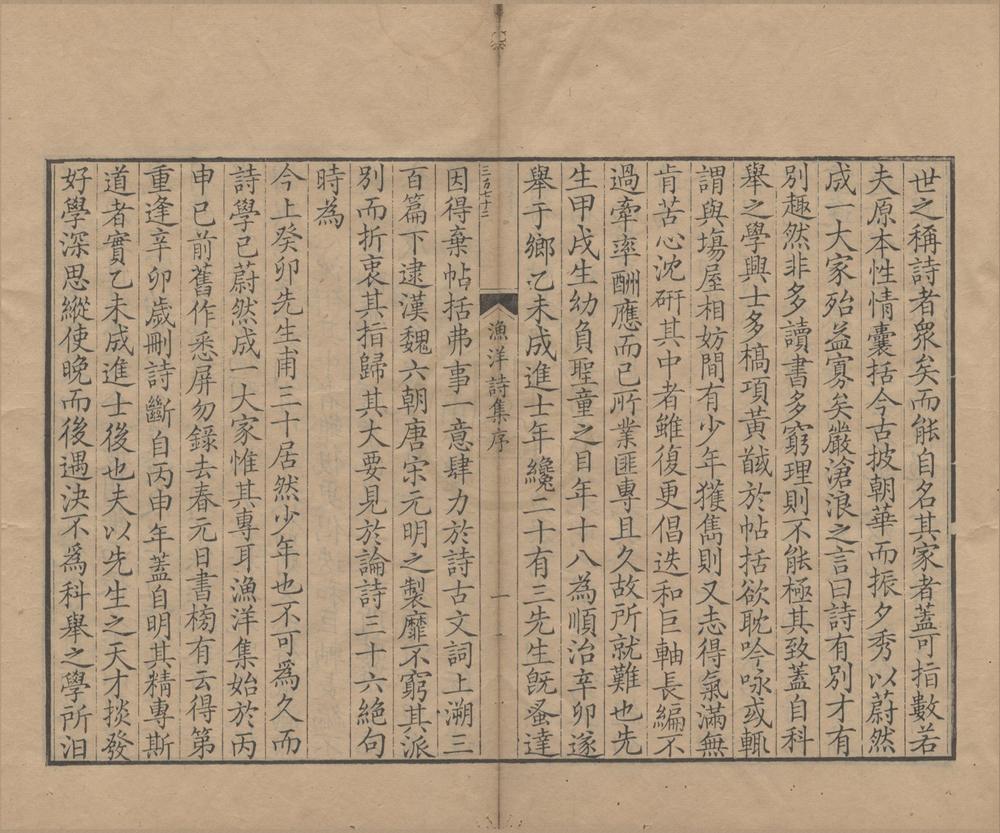 世之稱詩者衆矣而能自名其家者蓋可指數若
夫原本性情囊括今古披朝華而振夕秀以蔚然
成一大家殆益寡矣嚴滄浪之言曰詩有別才有
別趣然非多讀書多窮理則不能極其致蓋自科
舉之學興士多槁項黃馘於帖括欲耽吟咏或輒
謂與塲屋相妨間有少年獲雋則又志得氣滿無
肯苦心沈研其中者雖復更倡迭和巨軸長編不
過牽率酬應而已所業匪專且久故所就難也先
生甲戌生幼負聖童之目年十八為順治辛卯遂
舉于鄉乙未成進士年纔二十有三先生旣蚤達
三百七十二
漁洋詩集序
一
因得棄帖括弗事一意肆力於詩古文詞上溯三
百篇下逮漢魏六朝唐宋元明之製靡不窮其派
別而折衷其指歸其大要見於論詩三十六絕句
時為
今上癸卯先生甫三十居然少年也不可爲久而
詩學已蔚然成一大家惟其專耳漁洋集始於丙
申已前舊作悉屏勿錄去春元日書榜有云得第
重逢辛卯歲刪詩斷自丙申年蓋自明其精專斯
道者實乙未成進士後也夫以先生之天才掞發
好學深思縱使晚而後遇決不爲科舉之學所汩